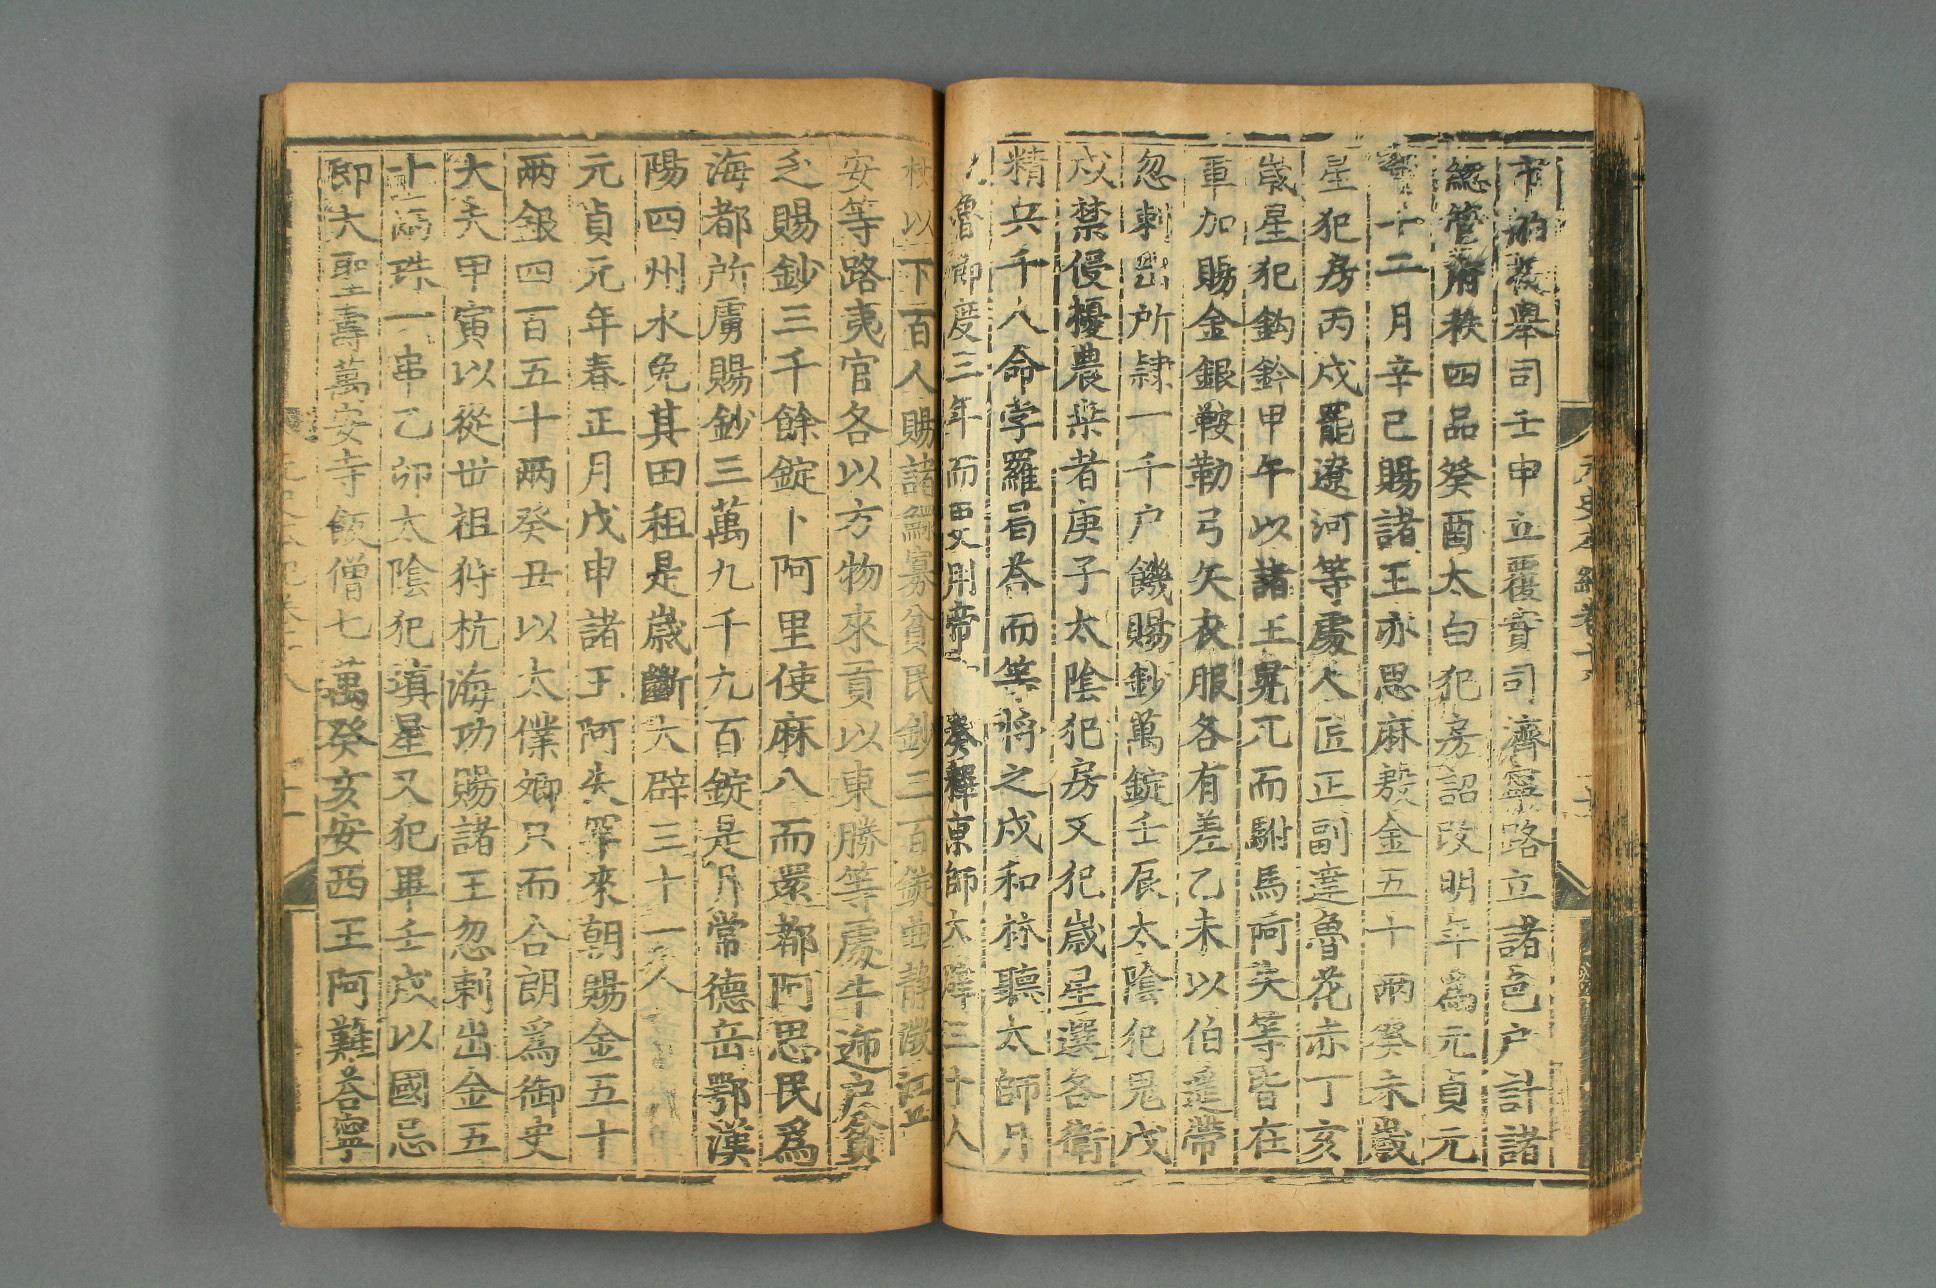 市舶提舉司壬申立覆實司濟寧路立諸色户計諸
總管府秩四品癸酉太白犯房詔改明年爲元貞元
十二月辛巳賜諸王亦思麻殷金五十兩癸未歲
星犯房丙戌罷遼河等處人匠正副達魯花赤丁亥
歲星犯鈎鈐甲午以諸王晃兀而駙馬阿失等皆在
軍加賜金銀鞍勒弓矢衣服各有差乙未以伯遥帶
忽剌出所隸一千户饑賜鈔萬錠壬辰太陰犯鬼戊
戌禁侵擾農桒者庚子太陰犯房又犯歲星選各衛
精兵千人命孛羅曷荅而等將之戍和林聽太師月
魯節度三年而更用帝 釋京師大辟三十人
杖以下百人賜諸鰥寡貧民鈔二百錠曲靜澂江
安等路夷官各以方物來貢以東勝等處牛逓户貧
乏賜鈔三千餘錠卜阿里使麻八而還都阿思民爲
海都所虜賜鈔三萬九千九百錠是月常德岳鄂漢
陽四州水免其田租是歲斷大辟三十一人
元貞元年春正月戊申諸王阿失罕來朝賜金五十
兩銀四百五十兩癸丑以太僕卿只而合朗爲御史
大夫甲寅以從世祖狩杭海功賜諸王忽剌出金五
十 珠一串乙卯太陰犯填星又犯畢壬戌以國忌
即大聖壽萬安寺飯僧七萬癸亥安西王阿難荅寧